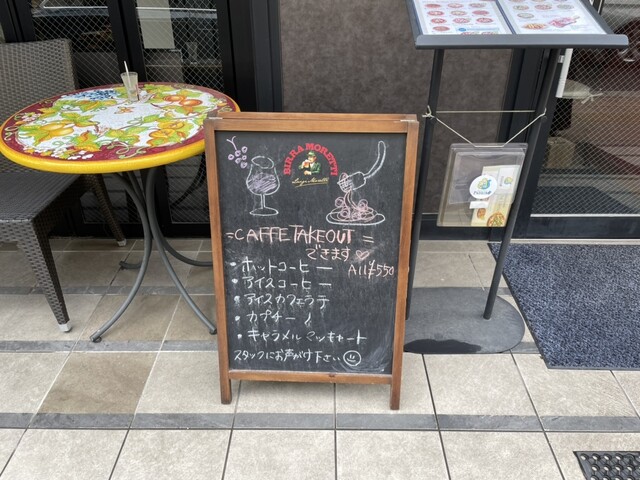 BIRRA MORETTI
=CAFFE TAKEOUT=
できます♡
・ホットコーヒー All¥550
・アイスコーヒー
・アイスカフェラテ
・カプチーノ
・キャラメルマッキャート
スタッフにお声がけ下さい☺